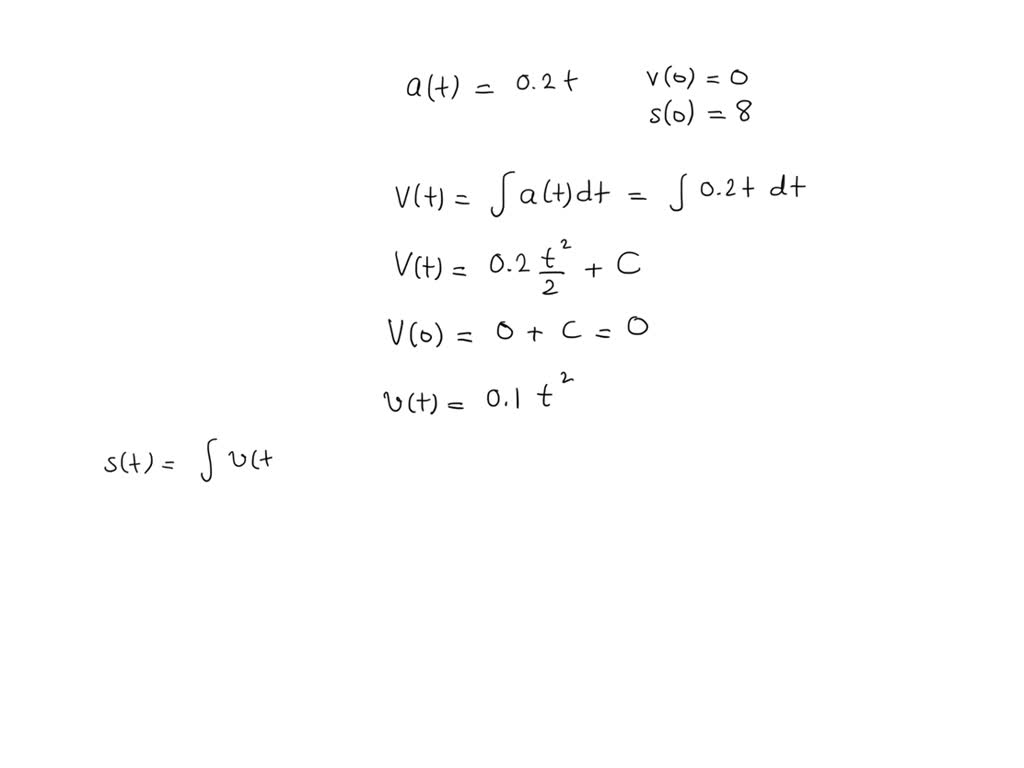 a(t) = 0.2t v(0) = 0
s(0) = 8
V(t) = ∫ a(t)dt = ∫ 0.2t dt
V(t) = 0.2 t²/2 + C
V(0) = 0 + C = 0
v(t) = 0.1 t²
s(t) = ∫ v(t